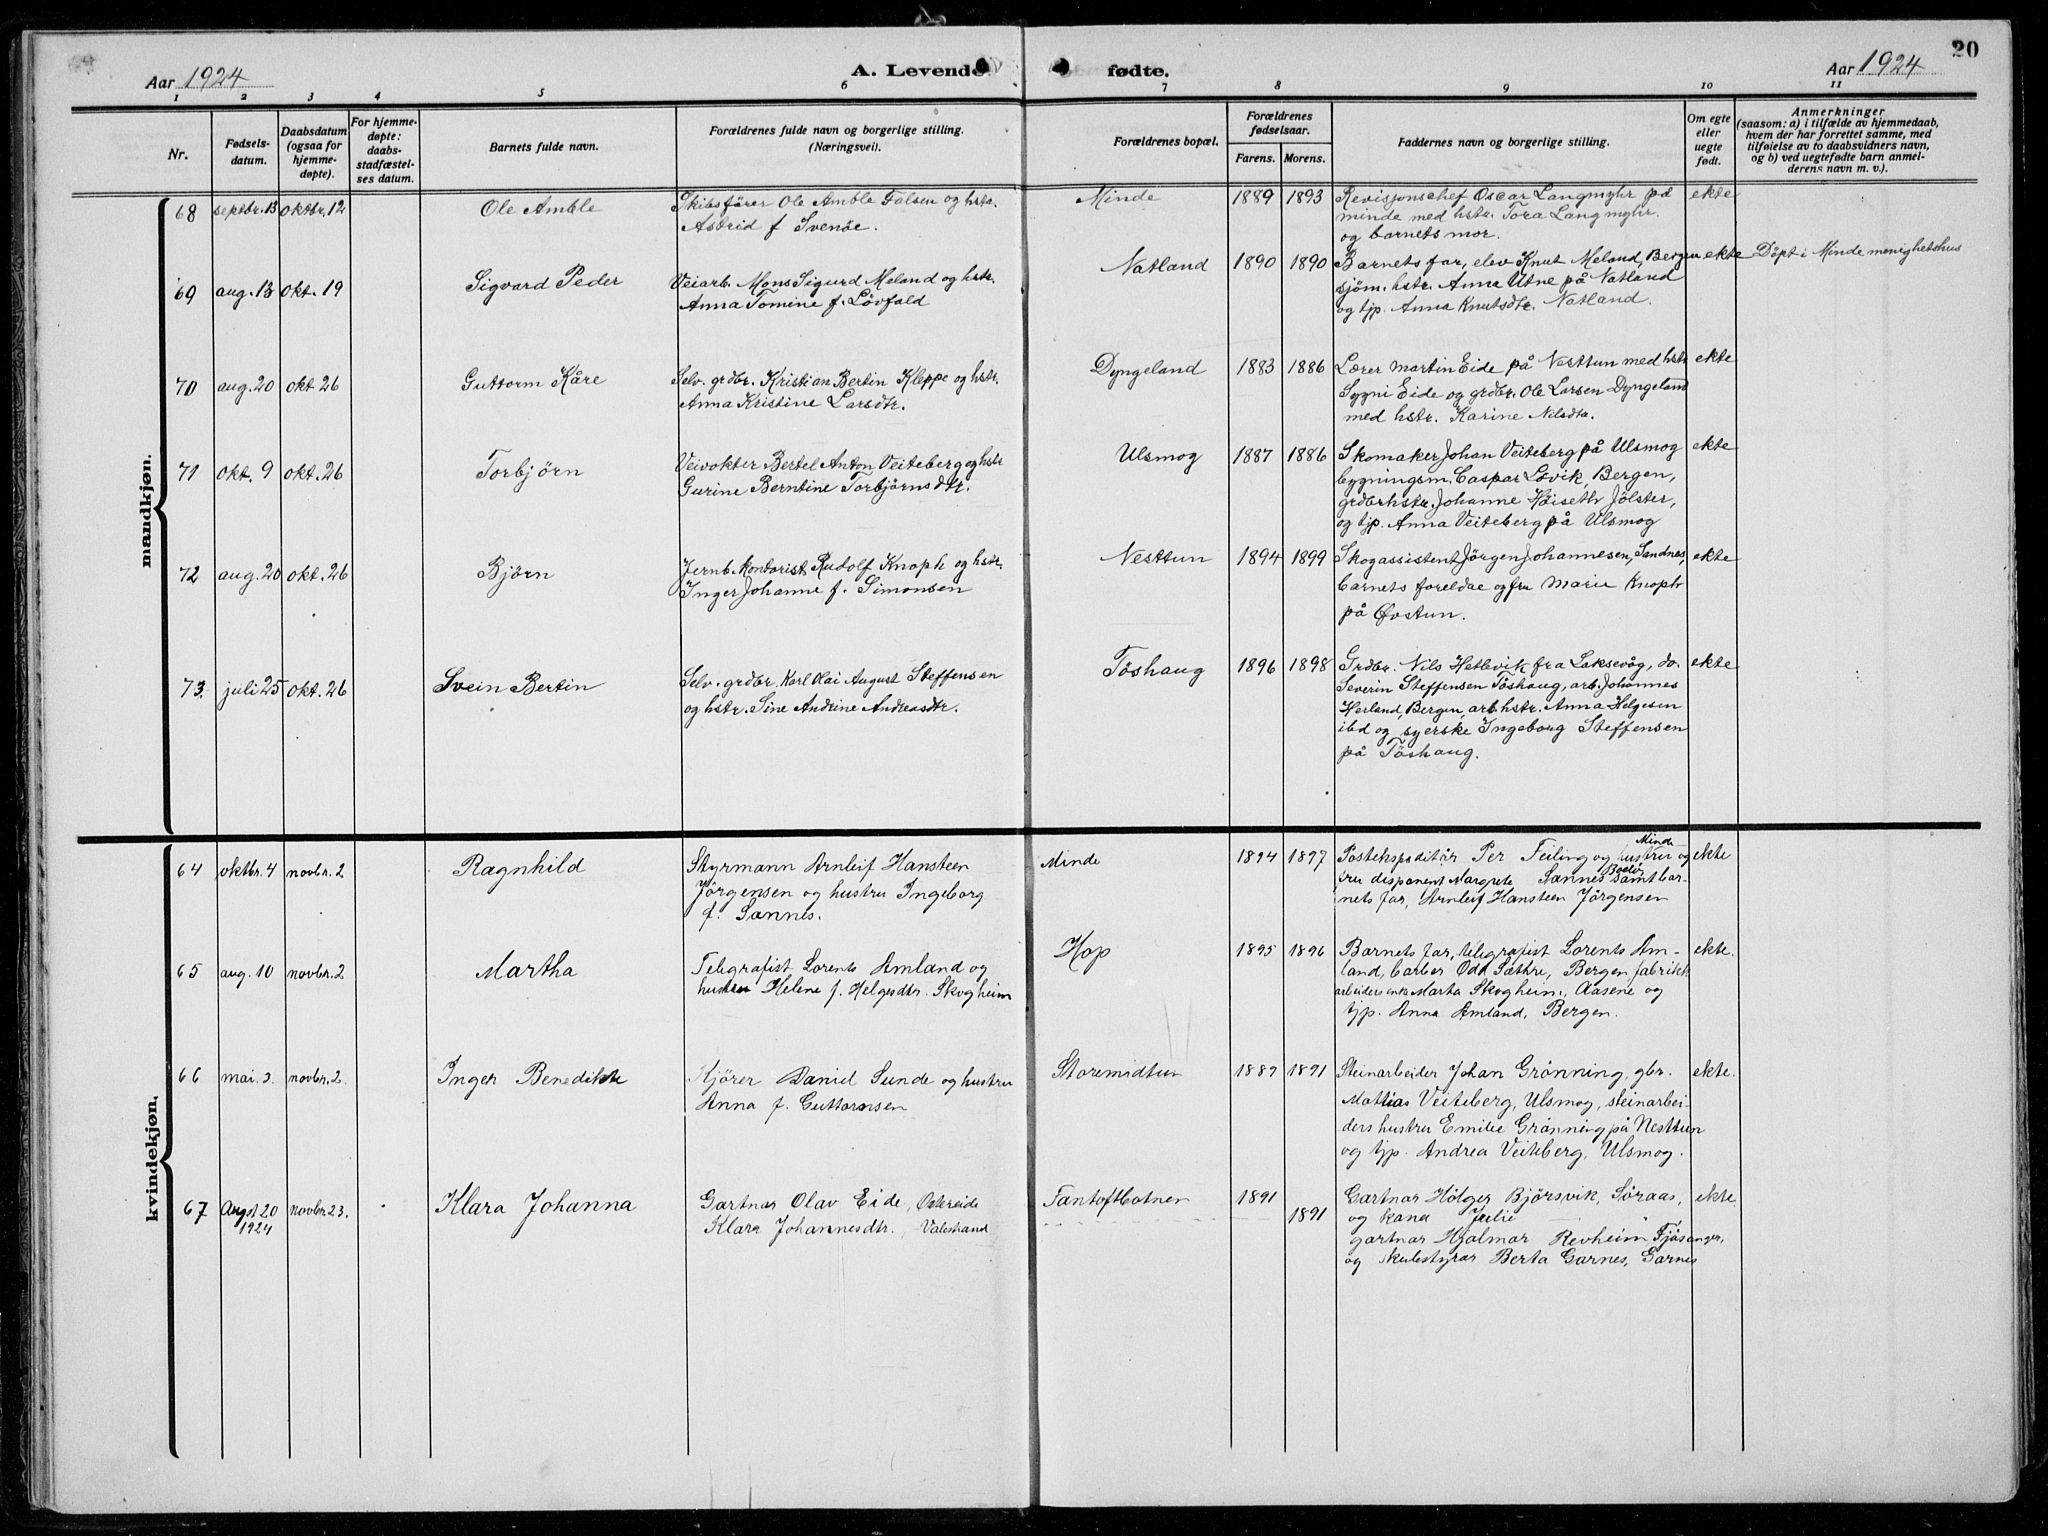 20
Aar 1924
A. Levende fødte.
Aar 1924
1 2 3 4 5 6 7 8 9 10 11
Nr.
Fødsels-
datum.
Daabsdatum
(ogsaa for
hjemme-
døpte).
For hjemme-
døpte:
daabs-
stadfæstel-
ses datum.
Barnets fulde navn.
Forældrenes fulde navn og borgerlige stilling.
(Næringsvei).
Forældrenes bopæl.
Forældrenes
fødselsaar.
Farens. Morens.
Faddernes navn og borgerlige stilling.
Om egte
eller
uegte
født.
Anmerkninger
(saasom: a) i tilfælde av hjemmedaab,
hvem der har forrettet samme, med
tilføielse av to daabsvidners navn,
og b) ved uegtefødte barn anmel-
derens navn m. v.).
mandkjøn.
68 septbr. 13 oktbr. 12 Ole Amble
Skibsfører Ole Amble Falsen og hstr.
Astrid f Svenöe.
Minde 1889 1893
Revisjonschef Oscar Langmyhr på
minde med hstr. Tora Langmyhr.
og barnets mor.
ekte
69 aug. 13 okt. 19 Sigvard Peder
Veiarb. Mons Sigurd Meland og hstr.
Anna Tomine f. Lövfald
Natland 1890 1890
Barnets far, elev Knut Meland Bergen
sjöm. hstr. Anna Utne på Natland
og tjp. Anna Knutsdtr. Natland.
ekte Döpt i Minde menighetshus
70 aug. 20 okt 26 Guttorm Kåre
Selv. grdbr. Kristian Bertin Kleppe og hstr.
Anna Kristine Larsdtr.
Dyngeland 1883 1886
Lærer martin Eide på Nesttun med hstr
Sygni Eide og grdbr. Ole Larsen Dyngeland
med hstr. Karine Nilsdtr.
ekte
71 okt. 9 okt. 26 Torbjörn
Veivokter Bertel Anton Veiteberg og hstr
Gurine Berntine Torbjörnsdtr.
Ulsmog 1887 1886
Skomaker Johan Veiteberg på Ulsmog
bygningsm. Caspar Lövik, Bergen,
grdbrhstr. Johanne Höiseth Jölster,
og tjp. Anna Veiteberg på Ulsmog
ekte
72 aug. 20 okt. 26 Björn
Jernb. kontorist Rudolf Knoph og hstr.
Inger Johanne f. Simonsen
Nesttun 1894 1899
Skogassistent Jörgen Johannesen, Sandnes,
barnets foreldae og fru Marie Knoph
på Øvstun.
ekte
73. juli 25 okt. 26 Svein Bertin
Selv. grdbr. Karl Olai August Steffensen
og hstr. Sine Andrine Andreasdtr.
Töshaug 1896 1898
Grdbr. Nils Hetlevik fra Laksevåg, do.
Severin Steffensen Töshaug, arb. Johannes
Herland, Bergen, arb. hstr. Anna Helgesen
ibd og syerske Ingeborg Steffensen
på Töshaug.
ekte
kvindekjøn.
64 oktbr. 4 novbr. 2 Ragnhild
Styrmann Arnleif Hansteen
Jörgensen og hustru Ingeborg
f. Sannes.
Minde 1894 1897
Minde
Postekspeditör Per Feiling og hustru og
fru disponent Margrete Sannes samt bar-
nets far, Arnleif Hansteen Jörgensen
ekte
65 aug. 10 novbr. 2 Martha
Telegrafist Lorents Amland og
hustru Helene f. Helgesdtr. Skogheim
Hop 1895 1896
Barnets far, telegrafist Lorents Am-
land, barber Odd Sæthre, Bergen fabrikk
arbeidersenke Marta Skogheim, Aasene og
tjp. Anna Amland, Bergen.
ekte.
66 mai. 3. novbr. 2. Inger Benedikte
Kjörer Daniel Sunde og hustru
Anna f. Guttormsen
Storemidtun 1889 1891
Steinarbeider Johan Grönning, gbr.
Mattias Veiteberg, Ulsmog, steinarbei-
ders hustru Emilie Grönning på Nesttun
og tjp. Andrea Veiteberg, Ulsmog.
ekte.
67 Augst 20
1924
novbr 23. Klara Johanna
Gartnar Olav Eide, Ostereide
Klara Johannesdtr., Valestrand
Fantoftbotnen 1891
1891
Gartnar Holger Björsvik, Söraas,
og kana Julie
gartnar Hjalmar Revheim, Fjösanger,
og skulestyrar Berta Garnes, Garnes
ekte.